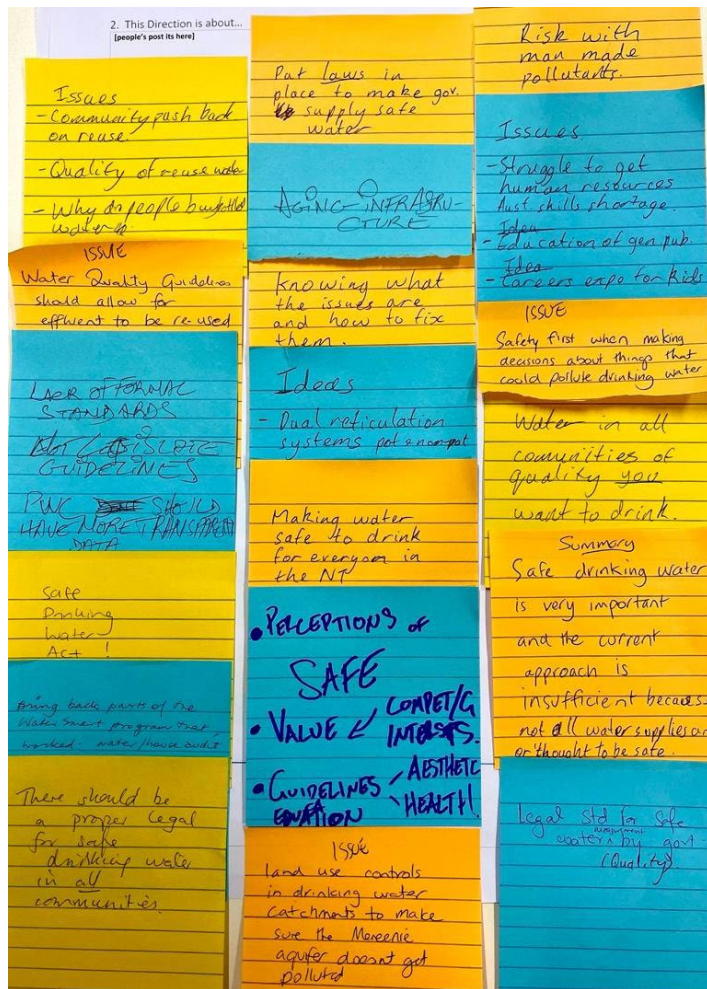 2. This Direction is about...
[people's post its here]
Issues
- Community push back
on reuse.
- Quality of reuse water
- Why do people buy bottled
water?
ISSUE
Water Quality Guidelines
should allow for
effluent to be re-used
LACK OF FORMAL
STANDARDS
NOT LEGISLATE
GUIDELINES
PWC SHOULD
HAVE MORE TRANSPARENT
DATA
Safe
Drinking
Water
Act !
Bring back parts of the
Water Smart program that
worked - water/house audit
There should be
a proper legal
for safe
drinking water
in all
communities.
Put laws in
place to make gov.
supply safe
water
AGING INFRASTRU-
CTURE
Knowing what
the issues are
and how to fix
them.
Ideas
- Dual reticulation
systems pot & non-pot
Making water
safe to drink
for everyone in
the NT
• PERCEPTIONS OF
SAFE
• VALUE COMPET/G
INTERESTS.
• GUIDELINES AESTHETIC
HEALTH!
ISSUE
land use controls
in drinking water
catchments to make
sure the Mereenie
aquifer doesnt get
polluted
Risk with
man made
pollutants.
Issues
- Struggle to get
human resources
Aust skills shortage.
Idea
- Education of gen pub.
Idea
- Careers expo for kids
ISSUE
Safety first when making
decisions about things that
could pollute drinking water
Water in all
comunities of
quality you
want to drink.
Summary
Safe drinking water
is very important
and the current
approach is
insufficient because
not all water supplies are
or thought to be safe.
Legal Std for Safe
water by govt
(Quality)